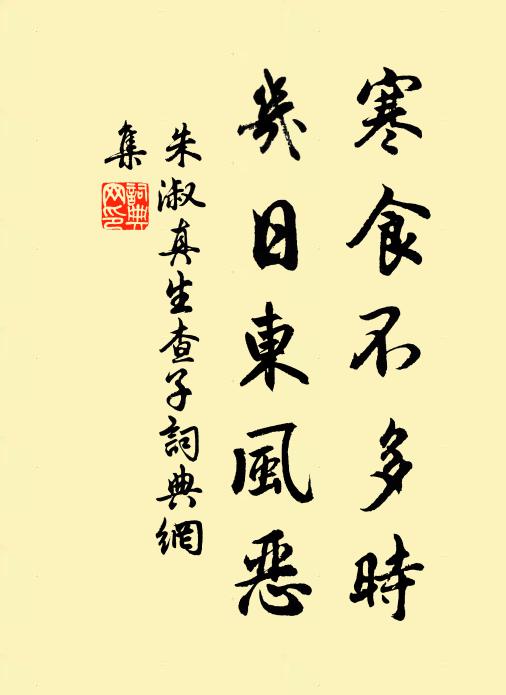 寒食不多時
幾日東風惡
朱淑真生查子詞典網
集
詞典
网印